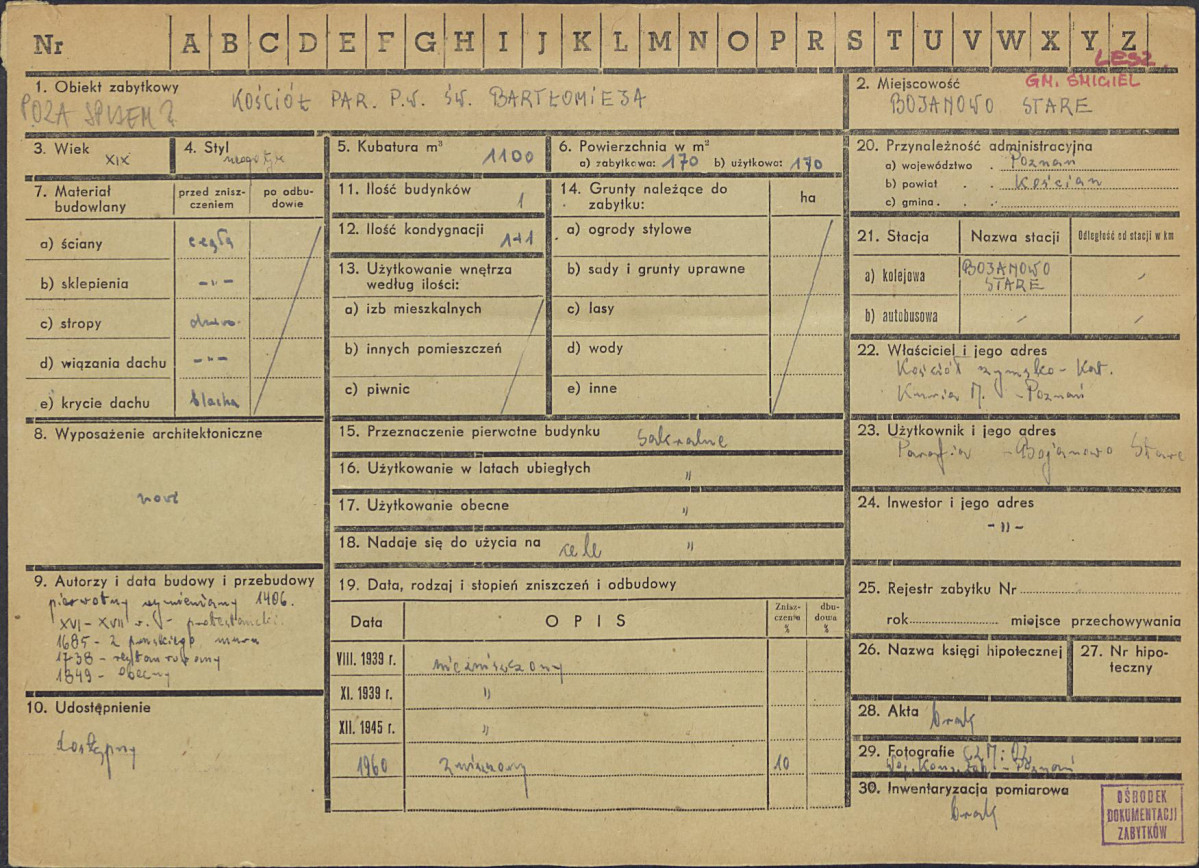 Nr A B C D E F G H I J K L M N O P R S T U V W X Y Z
LESZ.
1. Obiekt zabytkowy
KOŚCIÓŁ PAR. P.W. ŚW. BARTŁOMIEJA
POZA SPISEM?
2. Miejscowość
GM. ŚMIGIEL
BOJANOWO STARE
3. Wiek
XIX
4. Styl
neogotyk
5. Kubatura m³
1100
6. Powierzchnia w m²
a) zabytkowa: 170 b) użytkowa: 170
7. Materiał budowlany
przed zniszczeniem
po odbudowie
a) ściany cegła
b) sklepienia -"-
c) stropy drewno
d) wiązania dachu -"-
e) krycie dachu blacha
8. Wyposażenie architektoniczne
nowe
9. Autorzy i data budowy i przebudowy
pierwotny wymieniany 1406.
XVI-XVII w. - protestancki
1685 - z pruskiego muru
1738 - restaurowany
1849 - obecny
10. Udostępnienie
dostępny
11. Ilość budynków
1
12. Ilość kondygnacji
1+1
13. Użytkowanie wnętrza
według ilości:
a) izb mieszkalnych
b) innych pomieszczeń
c) piwnic
14. Grunty należące do
zabytku:
ha
a) ogrody stylowe
b) sady i grunty uprawne
c) lasy
d) wody
e) inne
15. Przeznaczenie pierwotne budynku sakralne
16. Użytkowanie w latach ubiegłych "
17. Użytkowanie obecne "
18. Nadaje się do użycia na cele "
19. Data, rodzaj i stopień zniszczeń i odbudowy
Data OPIS Zniszczeniu % dbudowa %
VIII. 1939 r. niezniszczony
XI. 1939 r. "
XII. 1945 r. "
1960 zniszczony 10
20. Przynależność administracyjna
a) województwo Poznań
b) powiat Kościan
c) gmina
21. Stacja Nazwa stacji Odległość od stacji w km
a) kolejowa BOJANOWO
STARE
b) autobusowa
22. Właściciel i jego adres
Kościół rzymsko-Kat.
Kuria M. - Poznań
23. Użytkownik i jego adres
Parafia - Bojanowo Stare
24. Inwestor i jego adres
-"-
25. Rejestr zabytku Nr
rok miejsce przechowywania
26. Nazwa księgi hipotecznej
27. Nr hipoteczny
28. Akta brak
29. Fotografie
Woj. Konserwat. - Poznań
30. Inwentaryzacja pomiarowa
brak
OŚRODEK
DOKUMENTACJI
ZABYTKÓW